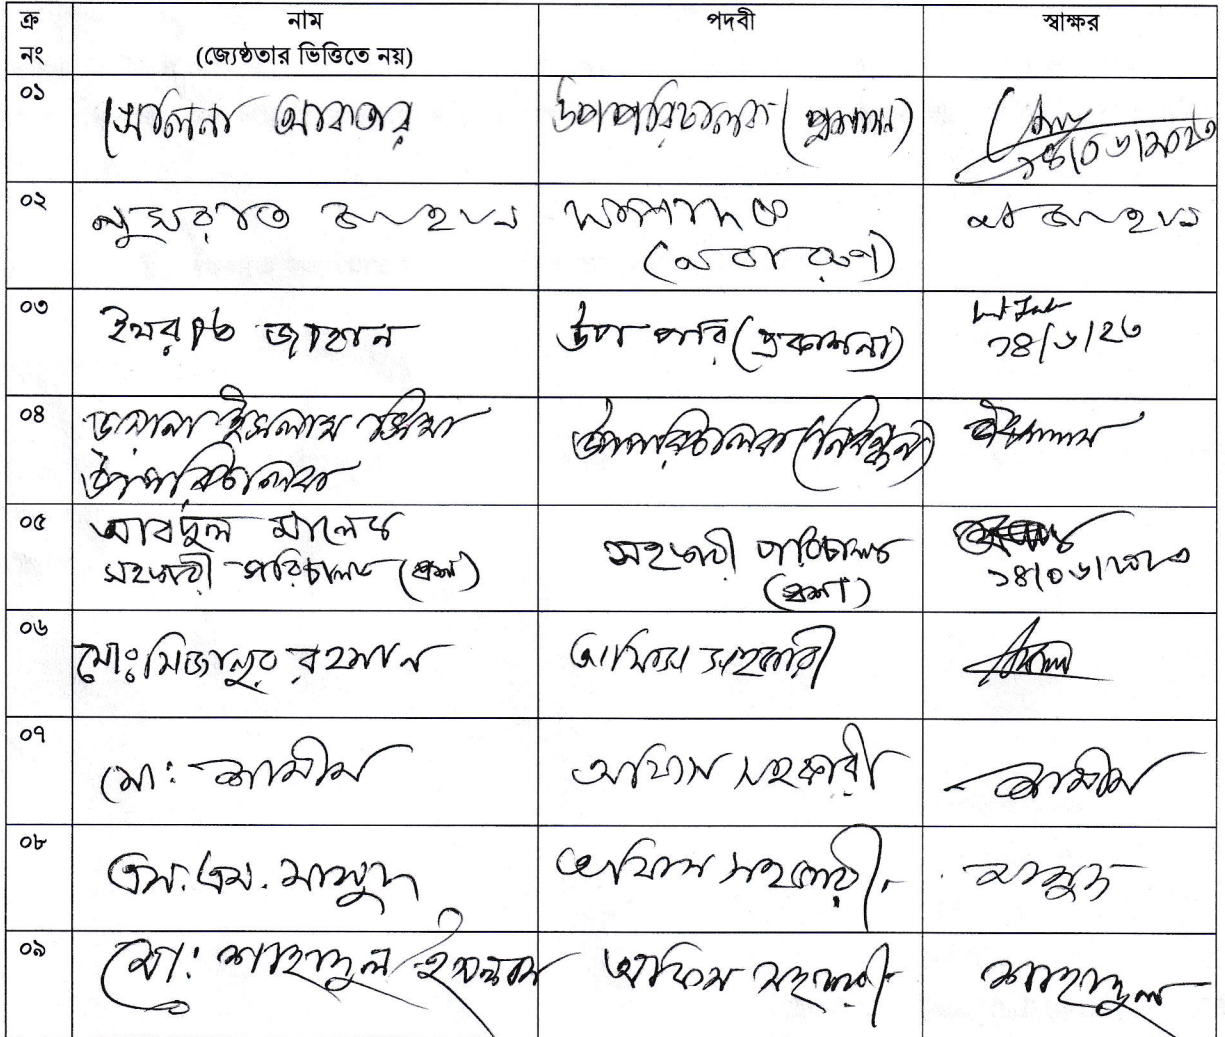 ক্র নং
নাম
(জ্যেষ্ঠতার ভিত্তিতে নয়)
পদবী
স্বাক্ষর
০১
উপপরিচালক (প্রশাসন)
০২
নুসরাত জাহান
০৩
ইসরাত জাহান
উপ পরি (প্রকাশনা)
১৪/৬/২৩
০৪
ইসলাম
উপপরিচালক
উপপরিচালক (নিবন্ধন)
০৫
আবদুল মালেক
সহকারী পরিচালক (প্রশা)
সহকারী পরিচালক
(প্রশা)
১৪/০৬/২০২৩
০৬
মোঃ মিজানুর রহমান
অফিস সহকারী
০৭
মো: শামীম
অফিস সহকারী
শামীম
০৮
এস.এম. মাসুদ
অফিস সহকারী
মাসুদ
০৯
মো: শাহাদুল ইসলাম
অফিস সহকারী
শাহাদুল